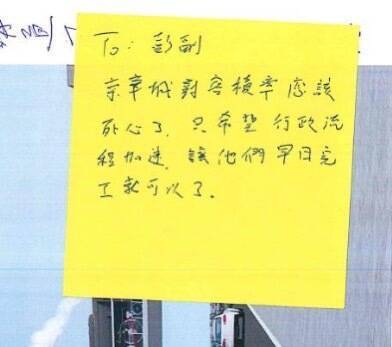 To: 彭副
京華城對容積率應該
死心了，只希望行政流
程加速，讓他們早日完
工就可以了。